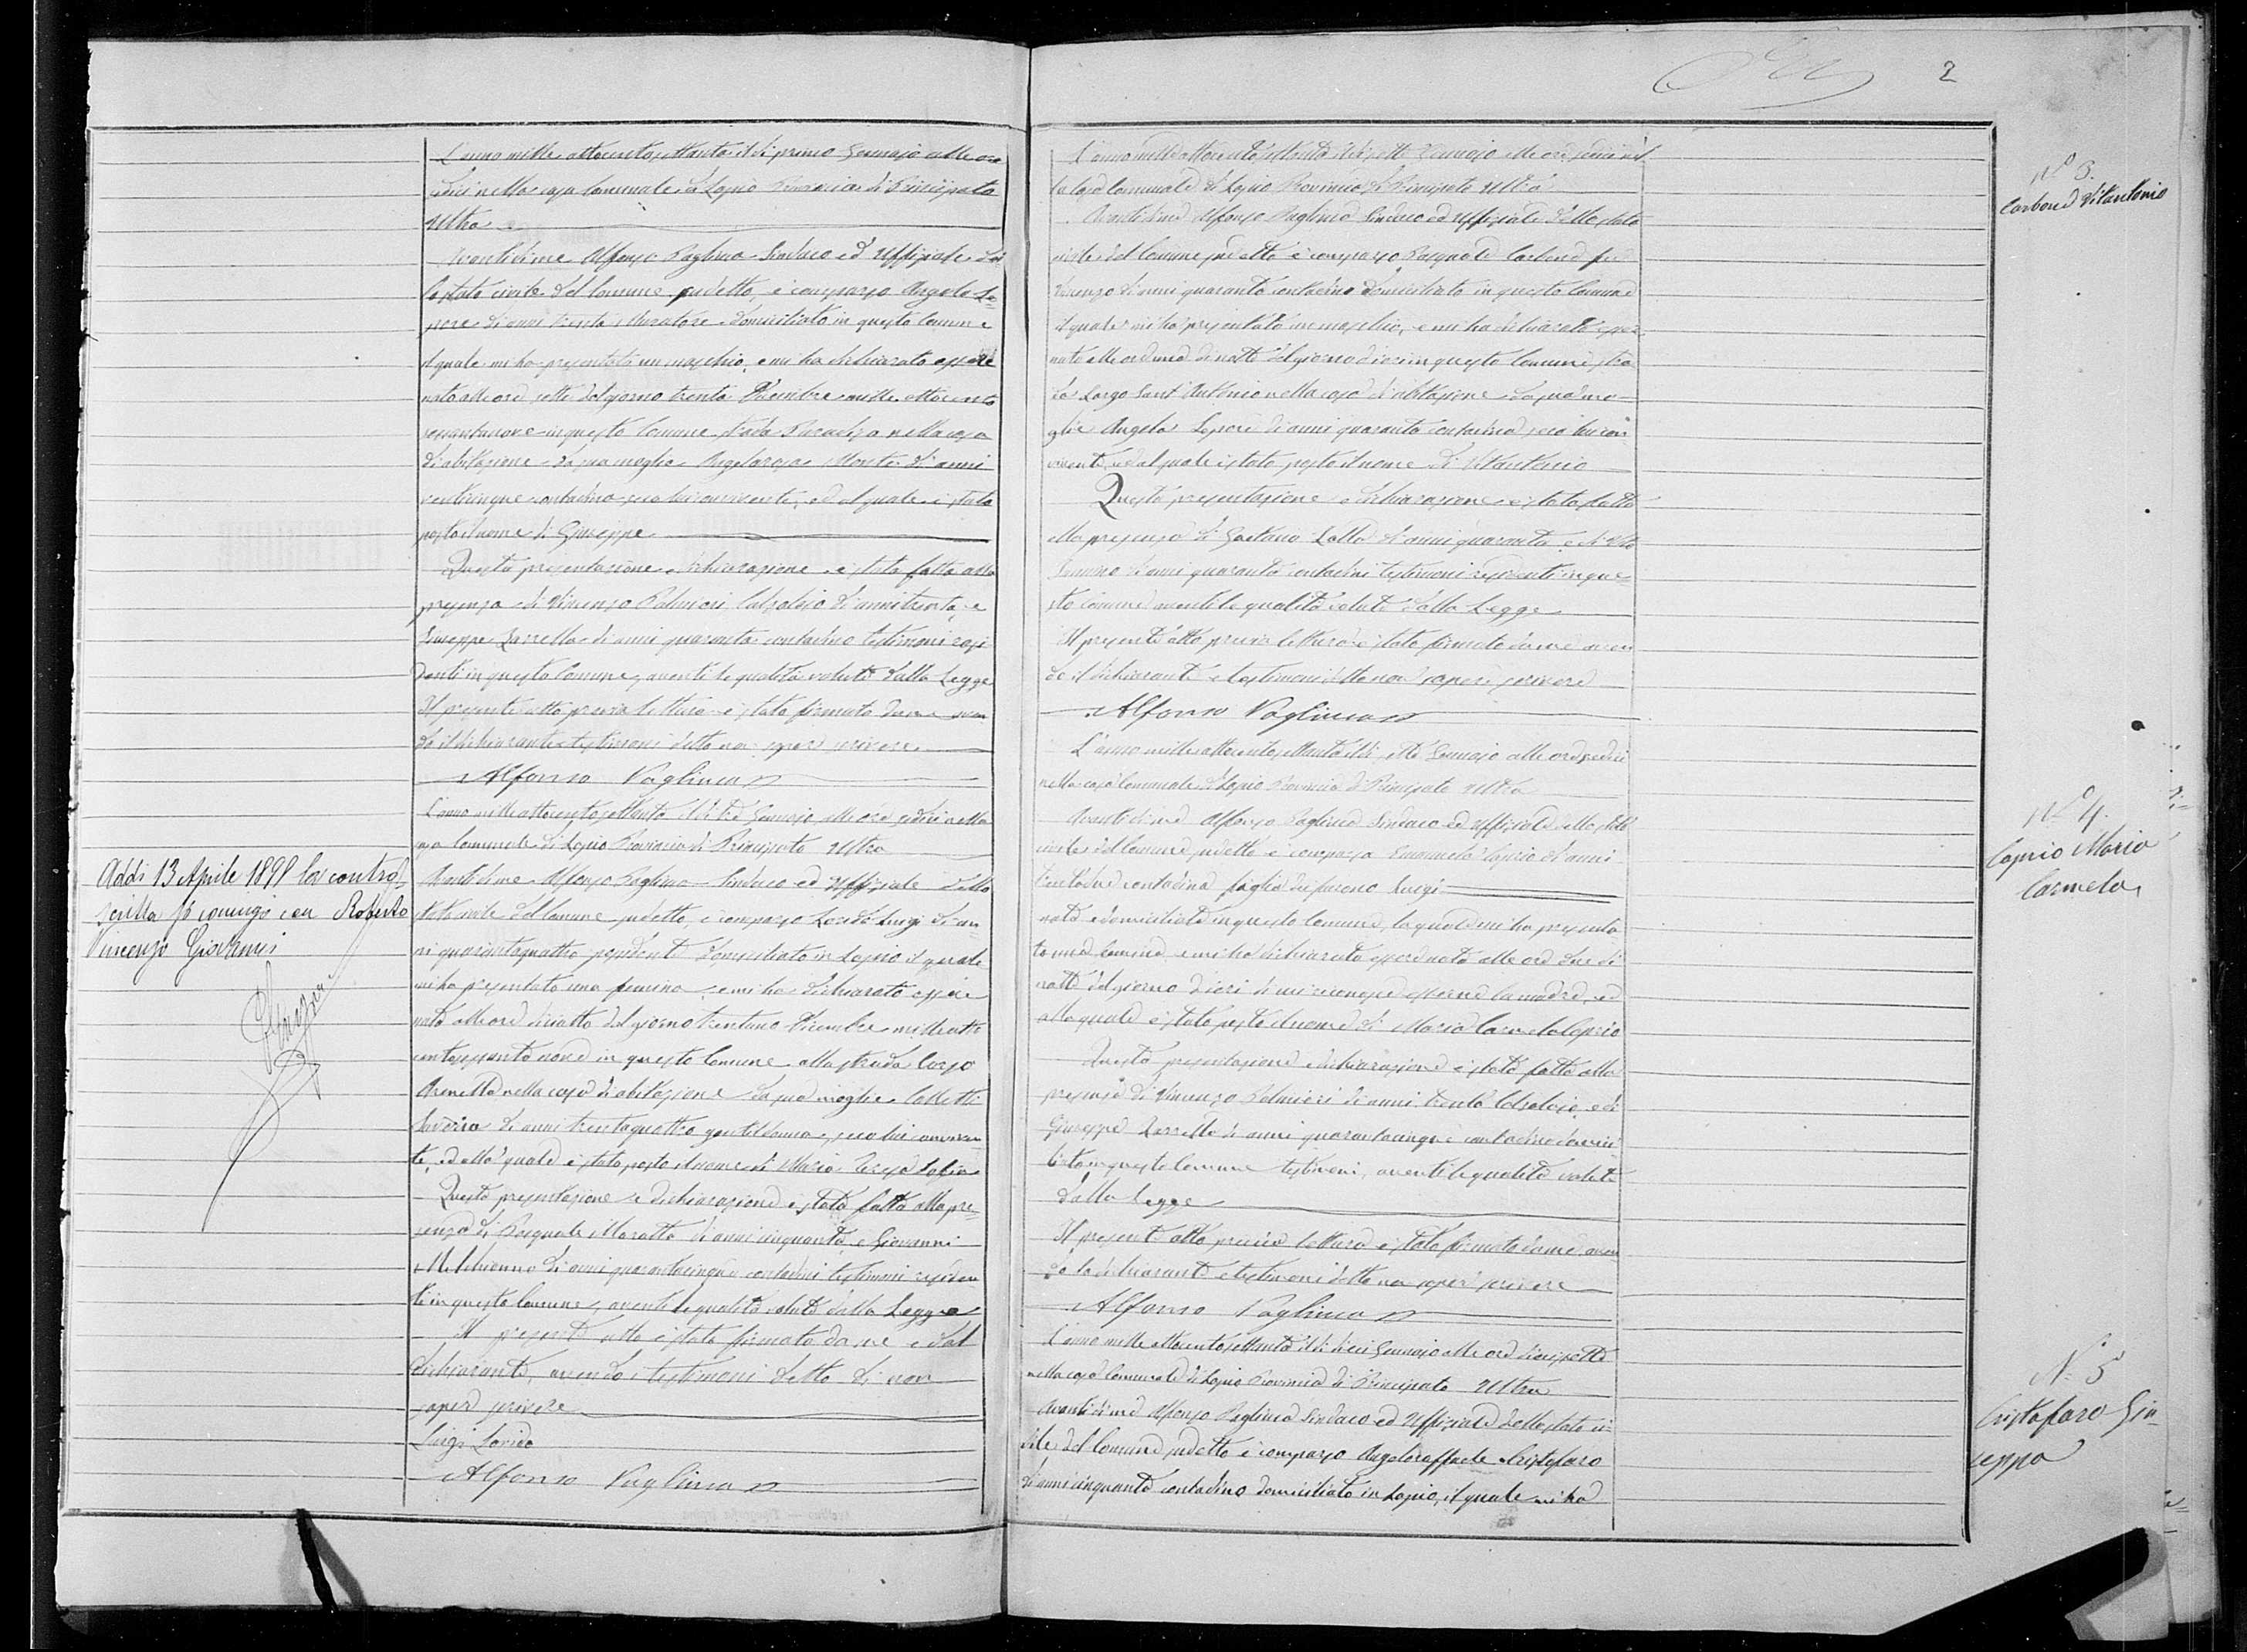 L'anno mille ottocento settanta il dì primo Gennajo alle ore
sedici nella casa Comunale di Lapio Provincia di Principato
Ultra
Avanti di me Alfonso Pagliuca Sindaco ed Uffiziale del
lo stato civile del Comune sudetto, è comparso Angelo Le=
pore di anni trenta Muratore domiciliato in questo Comune
il quale mi ha presentato un maschio, e mi ha dichiarato essere
nato alle ore sette del giorno trenta Dicembre mille ottocento
sessantanove in questo Comune strada nella casa
di abitazione di sua moglie Angelarosa Monte di anni
venticinque contadina seco lui convivente, ed al quale è stato
posto il nome di Giuseppe
Questa presentazione e dichiarazione è stata fatta alla
presenza di Vincenzo Palmieri Calzolaio di anni trenta, e
Giuseppe Zarrella di anni quaranta contadino testimoni resi
denti in questo Comune, aventi le qualità volute dalla Legge
Il presente atto previa lettura è stato firmato da me aven
do il dichiarante e testimoni detto non saper scrivere
Alfonso Pagliuca
L'anno mille ottocento settanta il dì tre Gennajo alle ore sedici nella
casa Comunale di Lapio Provincia di Principato Ultra
Avanti di me Alfonso Pagliuca Sindaco ed Uffiziale dello
stato civile del Comune sudetto, è comparso Luigi di an=
ni quarantaquattro possidente domiciliato in Lapio il quale
mi ha presentato una femina, e mi ha dichiarato essere
nata alle ore diciotto del giorno trentuno Dicembre mille otto
cento sessanta nove in questo Comune alla strada Corso
nella casa di abitazione di sua moglie
di anni trentaquattro gentildonna, seco lui conviven
te, ed alla quale è stato posto il nome di Maria Teresa
Questa presentazione e dichiarazione è stata fatta alla pre=
senza di Pasquale Moratta di anni cinquanta, e Giovanni
Melchionno di anni quarantacinque contadini testimoni residen
ti in questo Comune, aventi le qualità volute dalla Legge
Il presente atto è stato firmato da me e dal
dichiarante, avendo i testimoni detto di non
saper scrivere
Luigi
Alfonso Pagliuca
Addì 13 Aprile 1898 la contro=
scritta si coniugò con Roberto
Vincenzo Giovanni
2
L'anno mille ottocento settanta il dì sette Gennajo alle ore sedici nel
la casa Comunale di Lapio Provincia di Principato Ultra
Avanti di me Alfonso Pagliuca Sindaco ed Uffiziale dello stato
civile del Comune sudetto è comparso Pasquale Carbone fu
Vincenzo di anni quaranta contadino domiciliato in questo Comune
il quale mi ha presentato un maschio, e mi ha dichiarato esser
nato alle ore una di notte del giorno di ieri in questo Comune stra
da Largo Sant'Antonio nella casa di abitazione di sua mo=
glie Angela Lepore di anni quaranta contadina, seco lui con
vivente, ed al quale è stato posto il nome di Vitantonio
Questa presentazione e dichiarazione è stata fatta
alla presenza di Gaetano di anni quaranta, e di Vito
di anni quaranta contadini testimoni residenti in que=
sto Comune aventi le qualità volute dalla Legge
Il presente atto previa lettura è stato firmato da me aven
do il dichiarante e testimoni detto non saper scrivere
Alfonso Pagliuca
L'anno mille ottocento settanta il dì otto Gennajo alle ore sedici
nella casa Comunale di Lapio Provincia di Principato Ultra
Avanti di me Alfonso Pagliuca Sindaco ed Uffiziale dello stato
civile del Comune sudetto è comparsa Emanuela Caprio di anni
trentadue contadina figlia di Luigi
nata e domiciliata in questo Comune, la quale mi ha presenta
to una femina, e mi ha dichiarato essere nata alle ore due di
notte del giorno di ieri di cui riconosce esserne la madre, ed
alla quale è stato posto il nome di Maria Carmela Caprio
Questa presentazione e dichiarazione è stata fatta alla
presenza di Vincenzo Palmieri di anni trenta Calzolaio, e di
Giuseppe Zarrella di anni quarantacinque contadino domici
liato in questo Comune testimoni, aventi le qualità volute
dalla Legge
Il presente atto previa lettura è stato firmato da me aven
do la dichiarante e testimoni detto non saper scrivere
Alfonso Pagliuca
L'anno mille ottocento settanta il dì dieci Gennajo alle ore diciassette
nella casa Comunale di Lapio Provincia di Principato Ultra
Avanti di me Alfonso Pagliuca Sindaco ed Uffiziale dello stato ci=
vile del Comune sudetto è comparso Angeloraffaele Cristofaro
di anni cinquanta contadino domiciliato in Lapio, il quale mi ha
N.º 3.
Carbone Vitantonio
N.º 4.
Caprio Maria
Carmela
N. 5
Cristofaro Giu=
seppa